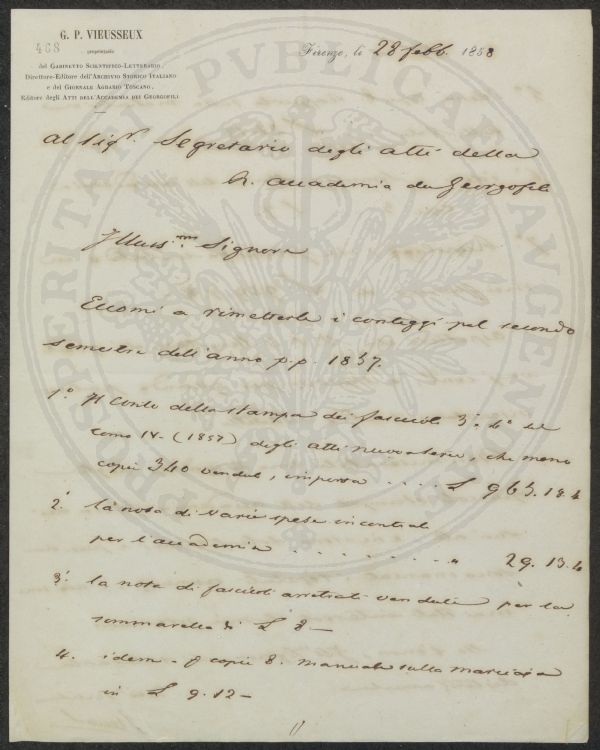 G. P. VIEUSSEUX
468
proprietario
del GABINETTO SCIENTIFICO-LETTERARIO,
Direttore-Editore dell'ARCHIVIO STORICO ITALIANO
e del GIORNALE AGRARIO TOSCANO,
Editore degli ATTI DELL'ACCADEMIA DEI GEORGOFILI
Firenze, le 28 febb. 1858
Al Sigr. Segretario degli atti della
R. Accademia dei Georgofili
Illuss.mo Signore
Eccomi a rimetterle i conteggi pel secondo
semestre dell'anno p.p. 1857.
1.° Il Conto della stampa dei fascicoli 3.° 4.° del
tomo IV - (1857) degli atti nuova serie, che meno
copie 340 vendute, importa .... £ 963.13.4
2.° la nota di varie spese incontrate
per l'accademia .......... " 29.13.4
3.° la nota di fascicoli arretrati venduti per la
sommarella di £ 8 —
4. idem - copie 8. manuale sulla
in £ 9.12 —
PROSPERITATI PUBLICAE AUGENDAE